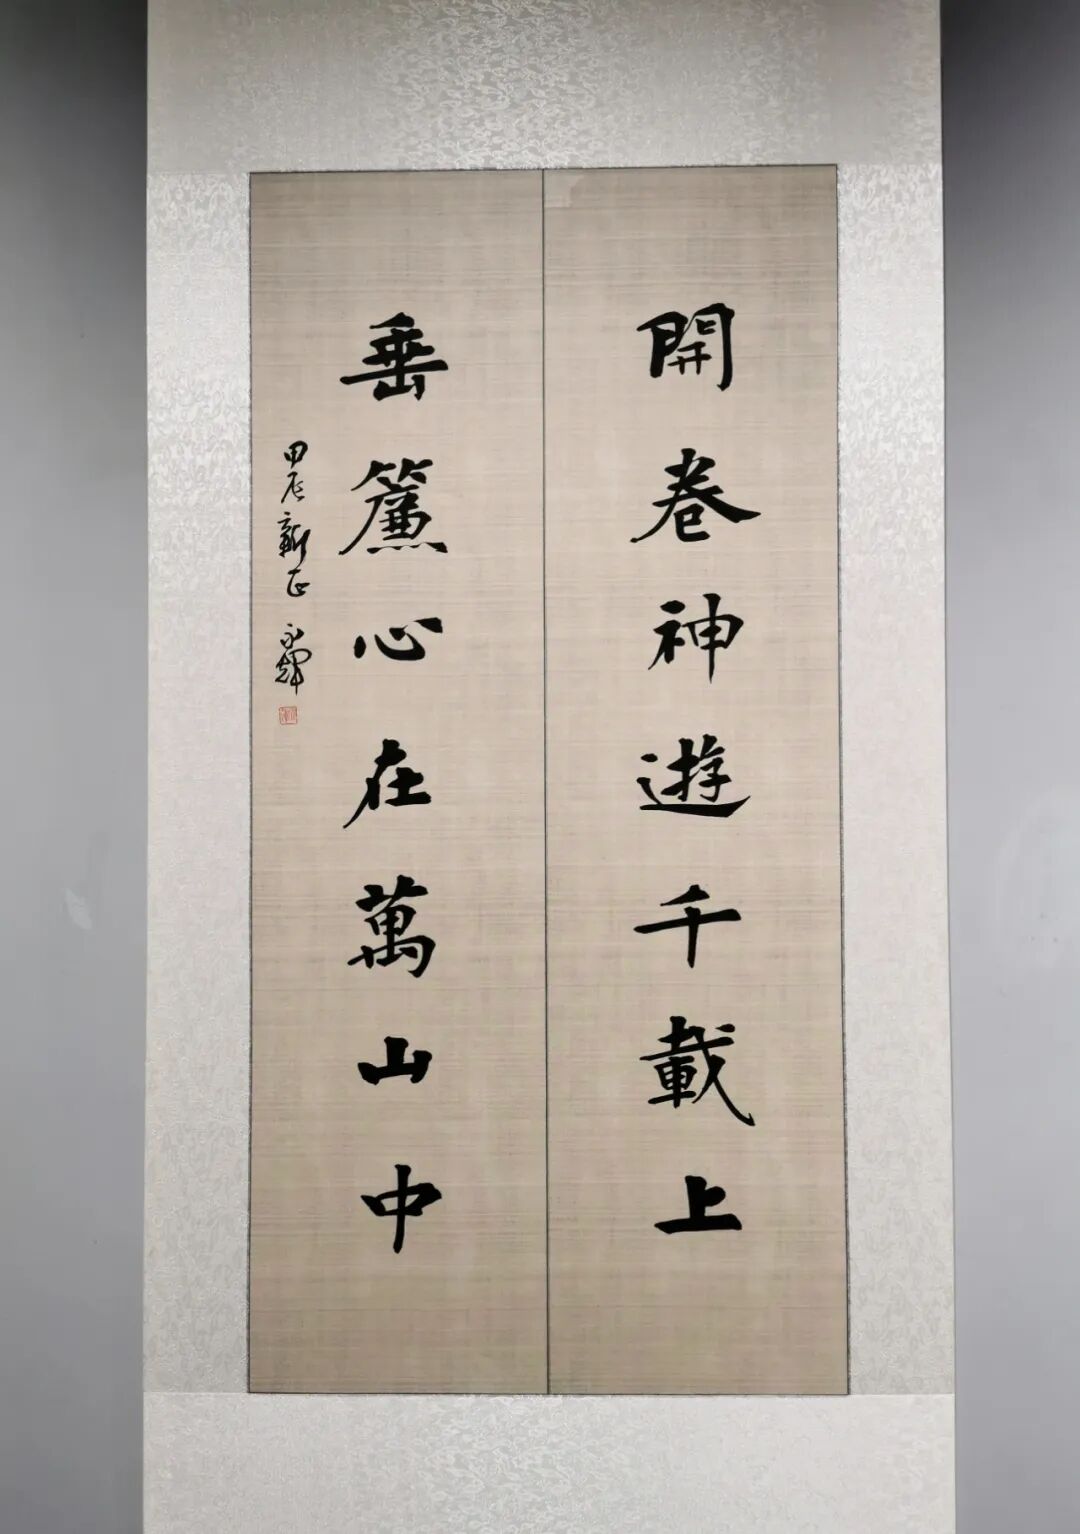 開卷神遊千載上
垂簾心在萬山中
甲辰新正 永輝